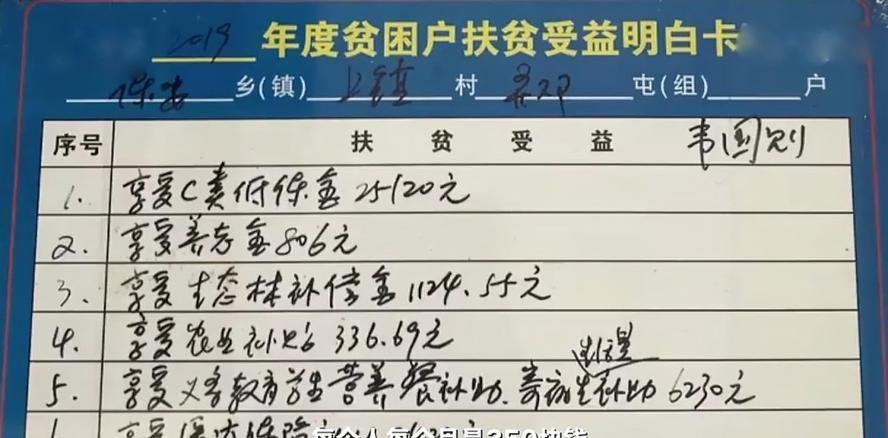 2019 年度贫困户扶贫受益明白卡
保安 乡(镇) 上镇 村 屯(组) 户
序号 扶贫受益 韦国则
1. 享受C类低保金25120元
2. 享受养老金806元
3. 享受生态林补偿金1124.55元
4. 享受农业补贴336.69元
5. 享受义务教育学生营养餐补助、寄宿生补助6230元
享受医疗保险
每个人每个月是250块钱